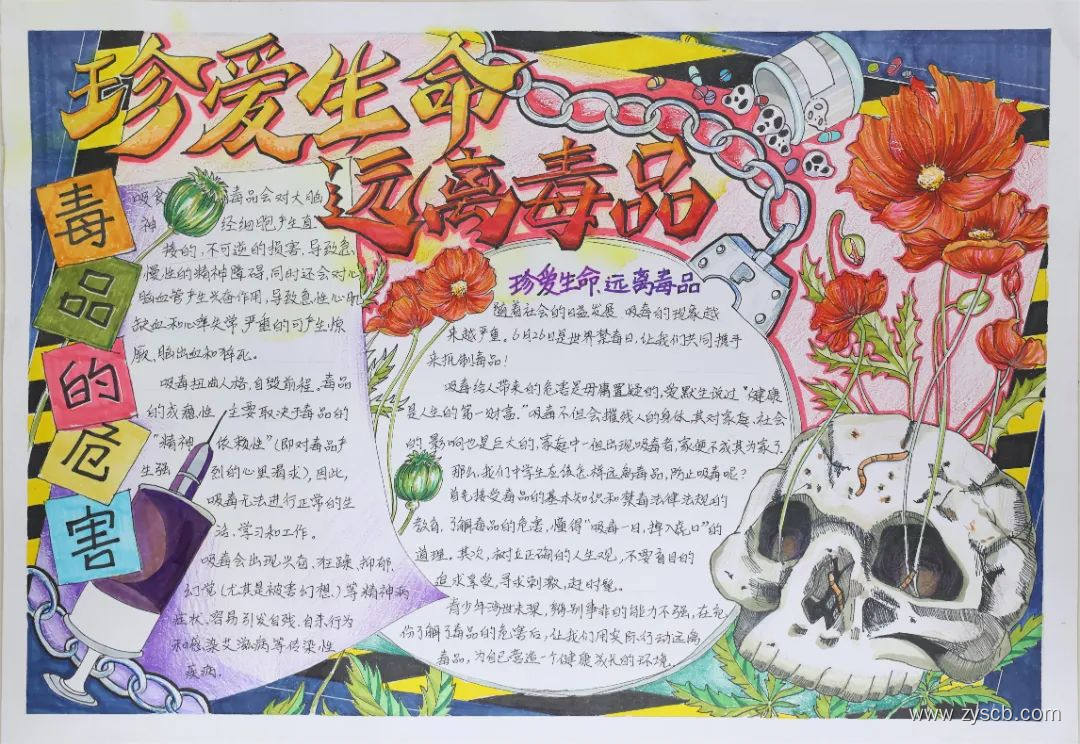 珍爱生命
远离毒品
毒品的危害
吸食 毒品会对大脑
神 经细胞产生直
接的,不可逆的损害,导致急,
慢性的精神障碍,同时还会对心
脑血管产生兴奋作用,导致急性心肌
缺血和心律失常,严重的可产生惊
厥、脑出血和猝死。
吸毒扭曲人格,自毁前程。毒品
的成瘾性 主要取决于毒品的
"精神 依赖性"(即对毒品产
生强 烈的心里渴求),因此,
吸毒无法进行正常的生
活、学习和工作。
吸毒会出现兴奋、狂躁、抑郁、
幻觉(尤其是被害幻想)等精神病
症状,容易引发自残、自杀行为
和感染艾滋病等传染性
疾病.
珍爱生命,远离毒品
随着社会的日益发展 吸毒的现象越
来越严重。6月26日是世界禁毒日,让我们共同携手
来抵制毒品!
吸毒给人带来的危害是毋庸置疑的,爱默生说过"健康
是人生的第一财富。"吸毒不但会摧残人的身体,其对家庭、社会
的影响也是巨大的,家庭中一但出现吸毒者,家便不成其为家了.
那么,我们中学生应该怎样远离毒品,防止吸毒呢?
首先接受毒品的基本知识和禁毒法律法规的
教育,了解毒品的危害,懂得"吸毒一口,掉入 口"的
道理。其次,树立正确的人生观,不要盲目的
追求享受,寻求刺激,赶时髦。
青少年涉世未深,辨别事非的能力不强,在
你了解了毒品的危害后,让我们用实际行动远离
毒品,为自己营造一个健康成长的环境.
www.zyscb.com